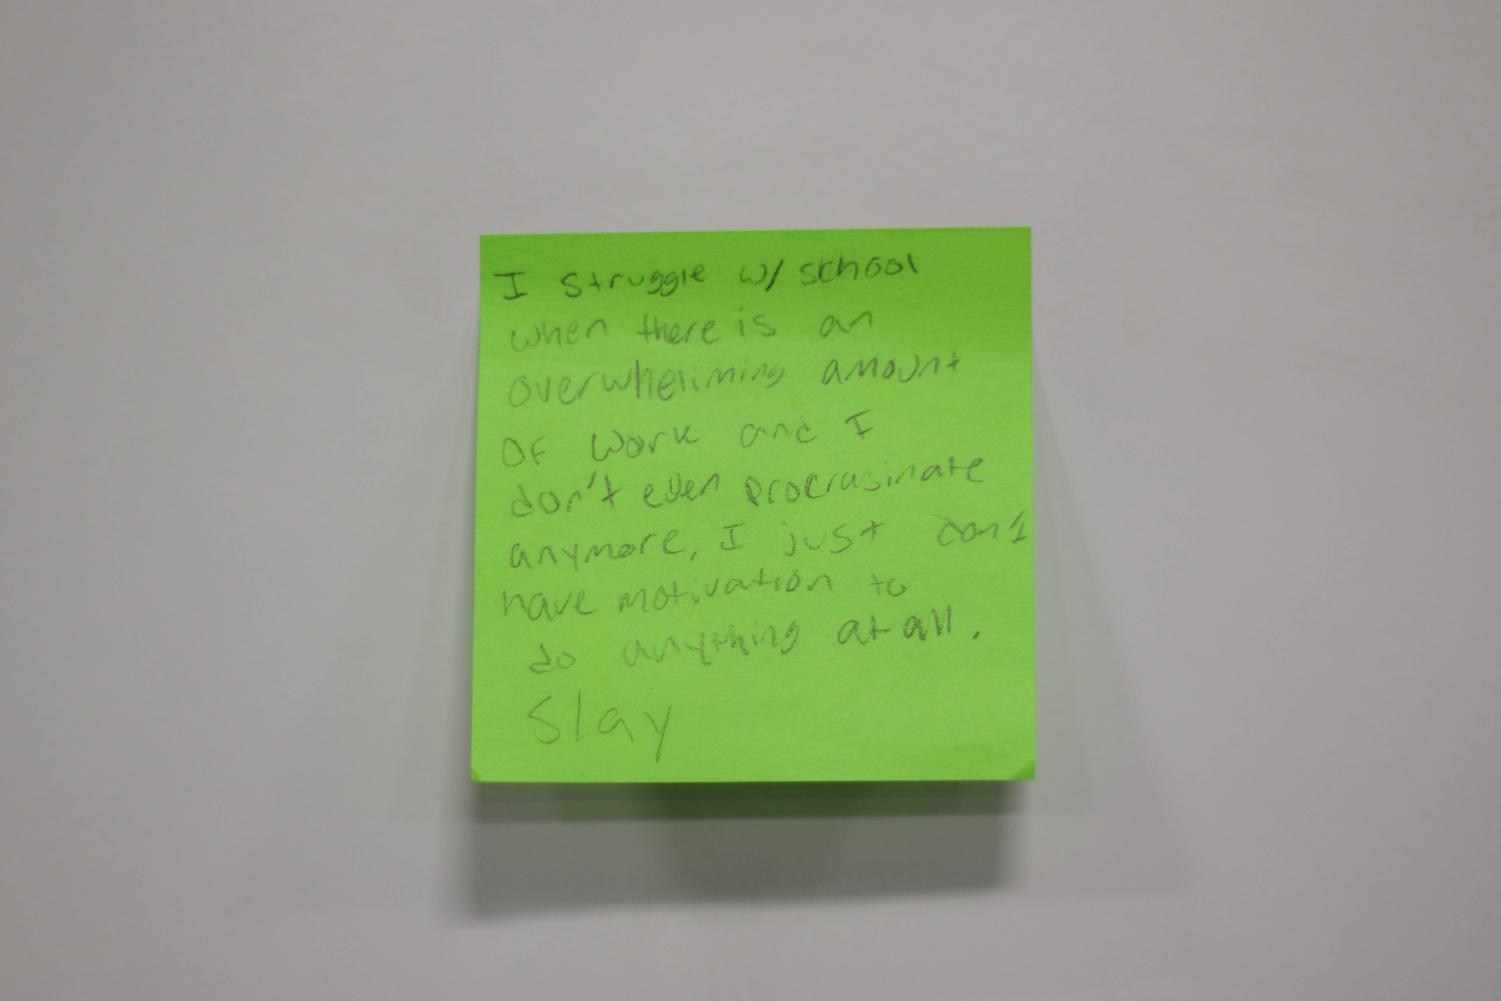 I struggle w/ school
when there is an
overwheliming amount
OF work and I
don't even procrasinate
anymore, I just don't
have motivation to
do anything at all.
Slay